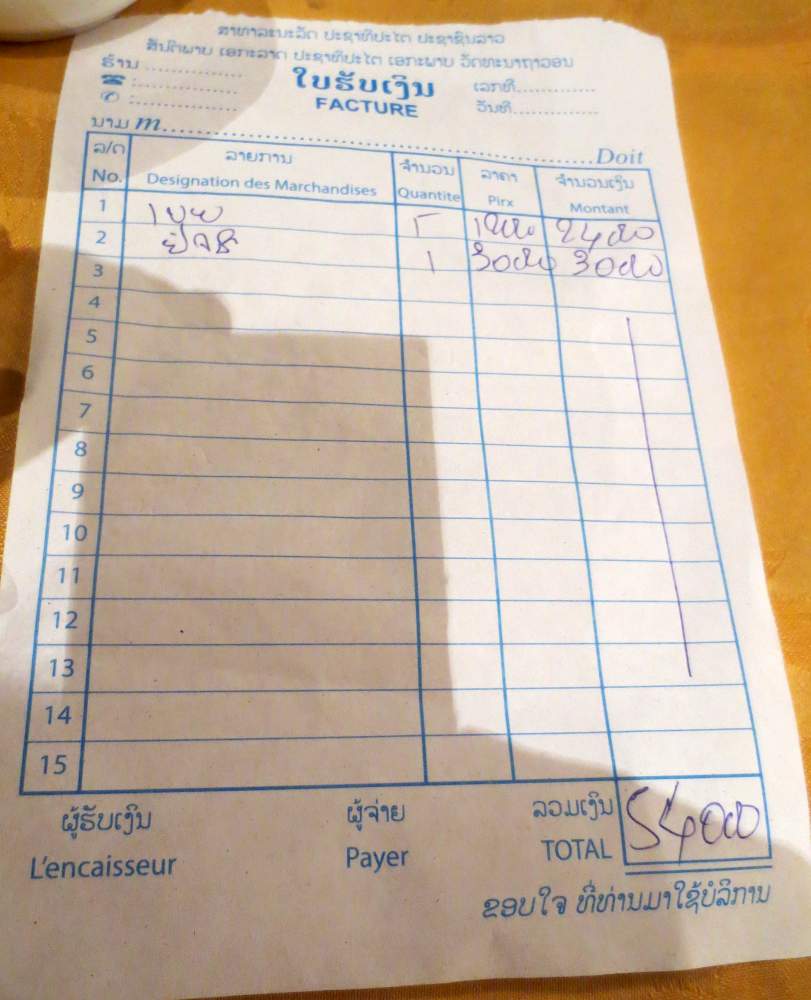 ສາທາລະນະລັດ ປະຊາທິປະໄຕ ປະຊາຊົນລາວ
ສັນຕິພາບ ເອກະລາດ ປະຊາທິປະໄຕ ເອກະພາບ ວັດທະນາຖາວອນ
ຮ້ານ ............... ໃບຮັບເງິນ ເລກທີ...............
☎ :............... FACTURE ວັນທີ...............
✆ :...............
ນາມ m...............Doit
ລ/ດ ລາຍການ ຈຳນວນ ລາຄາ ຈຳນວນເງິນ
No. Designation des Marchandises Quantite Pirx Montant
1 24000
2 1 30000 30000
3
4
5
6
7
8
9
10
11
12
13
14
15
ຜູ້ຮັບເງິນ ຜູ້ຈ່າຍ ລວມເງິນ 54000
L'encaisseur Payer TOTAL
ຂອບໃຈ ທີ່ທ່ານມາໃຊ້ບໍລິການ